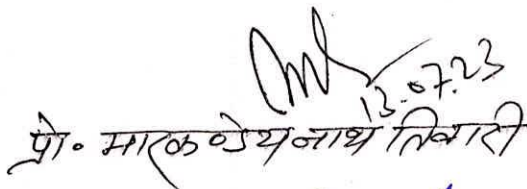 13.07.23
प्रो० मारकण्डेय नाथ तिवारी